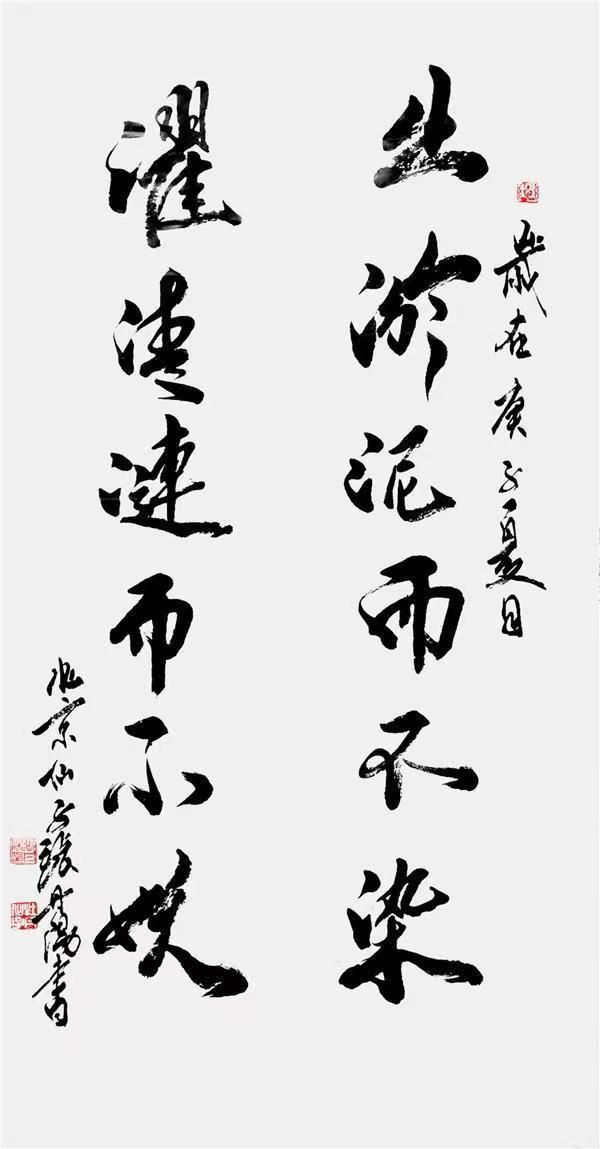 歲在庚子夏日
出淤泥而不染
濯清漣而不妖
京仙子張丹陽書